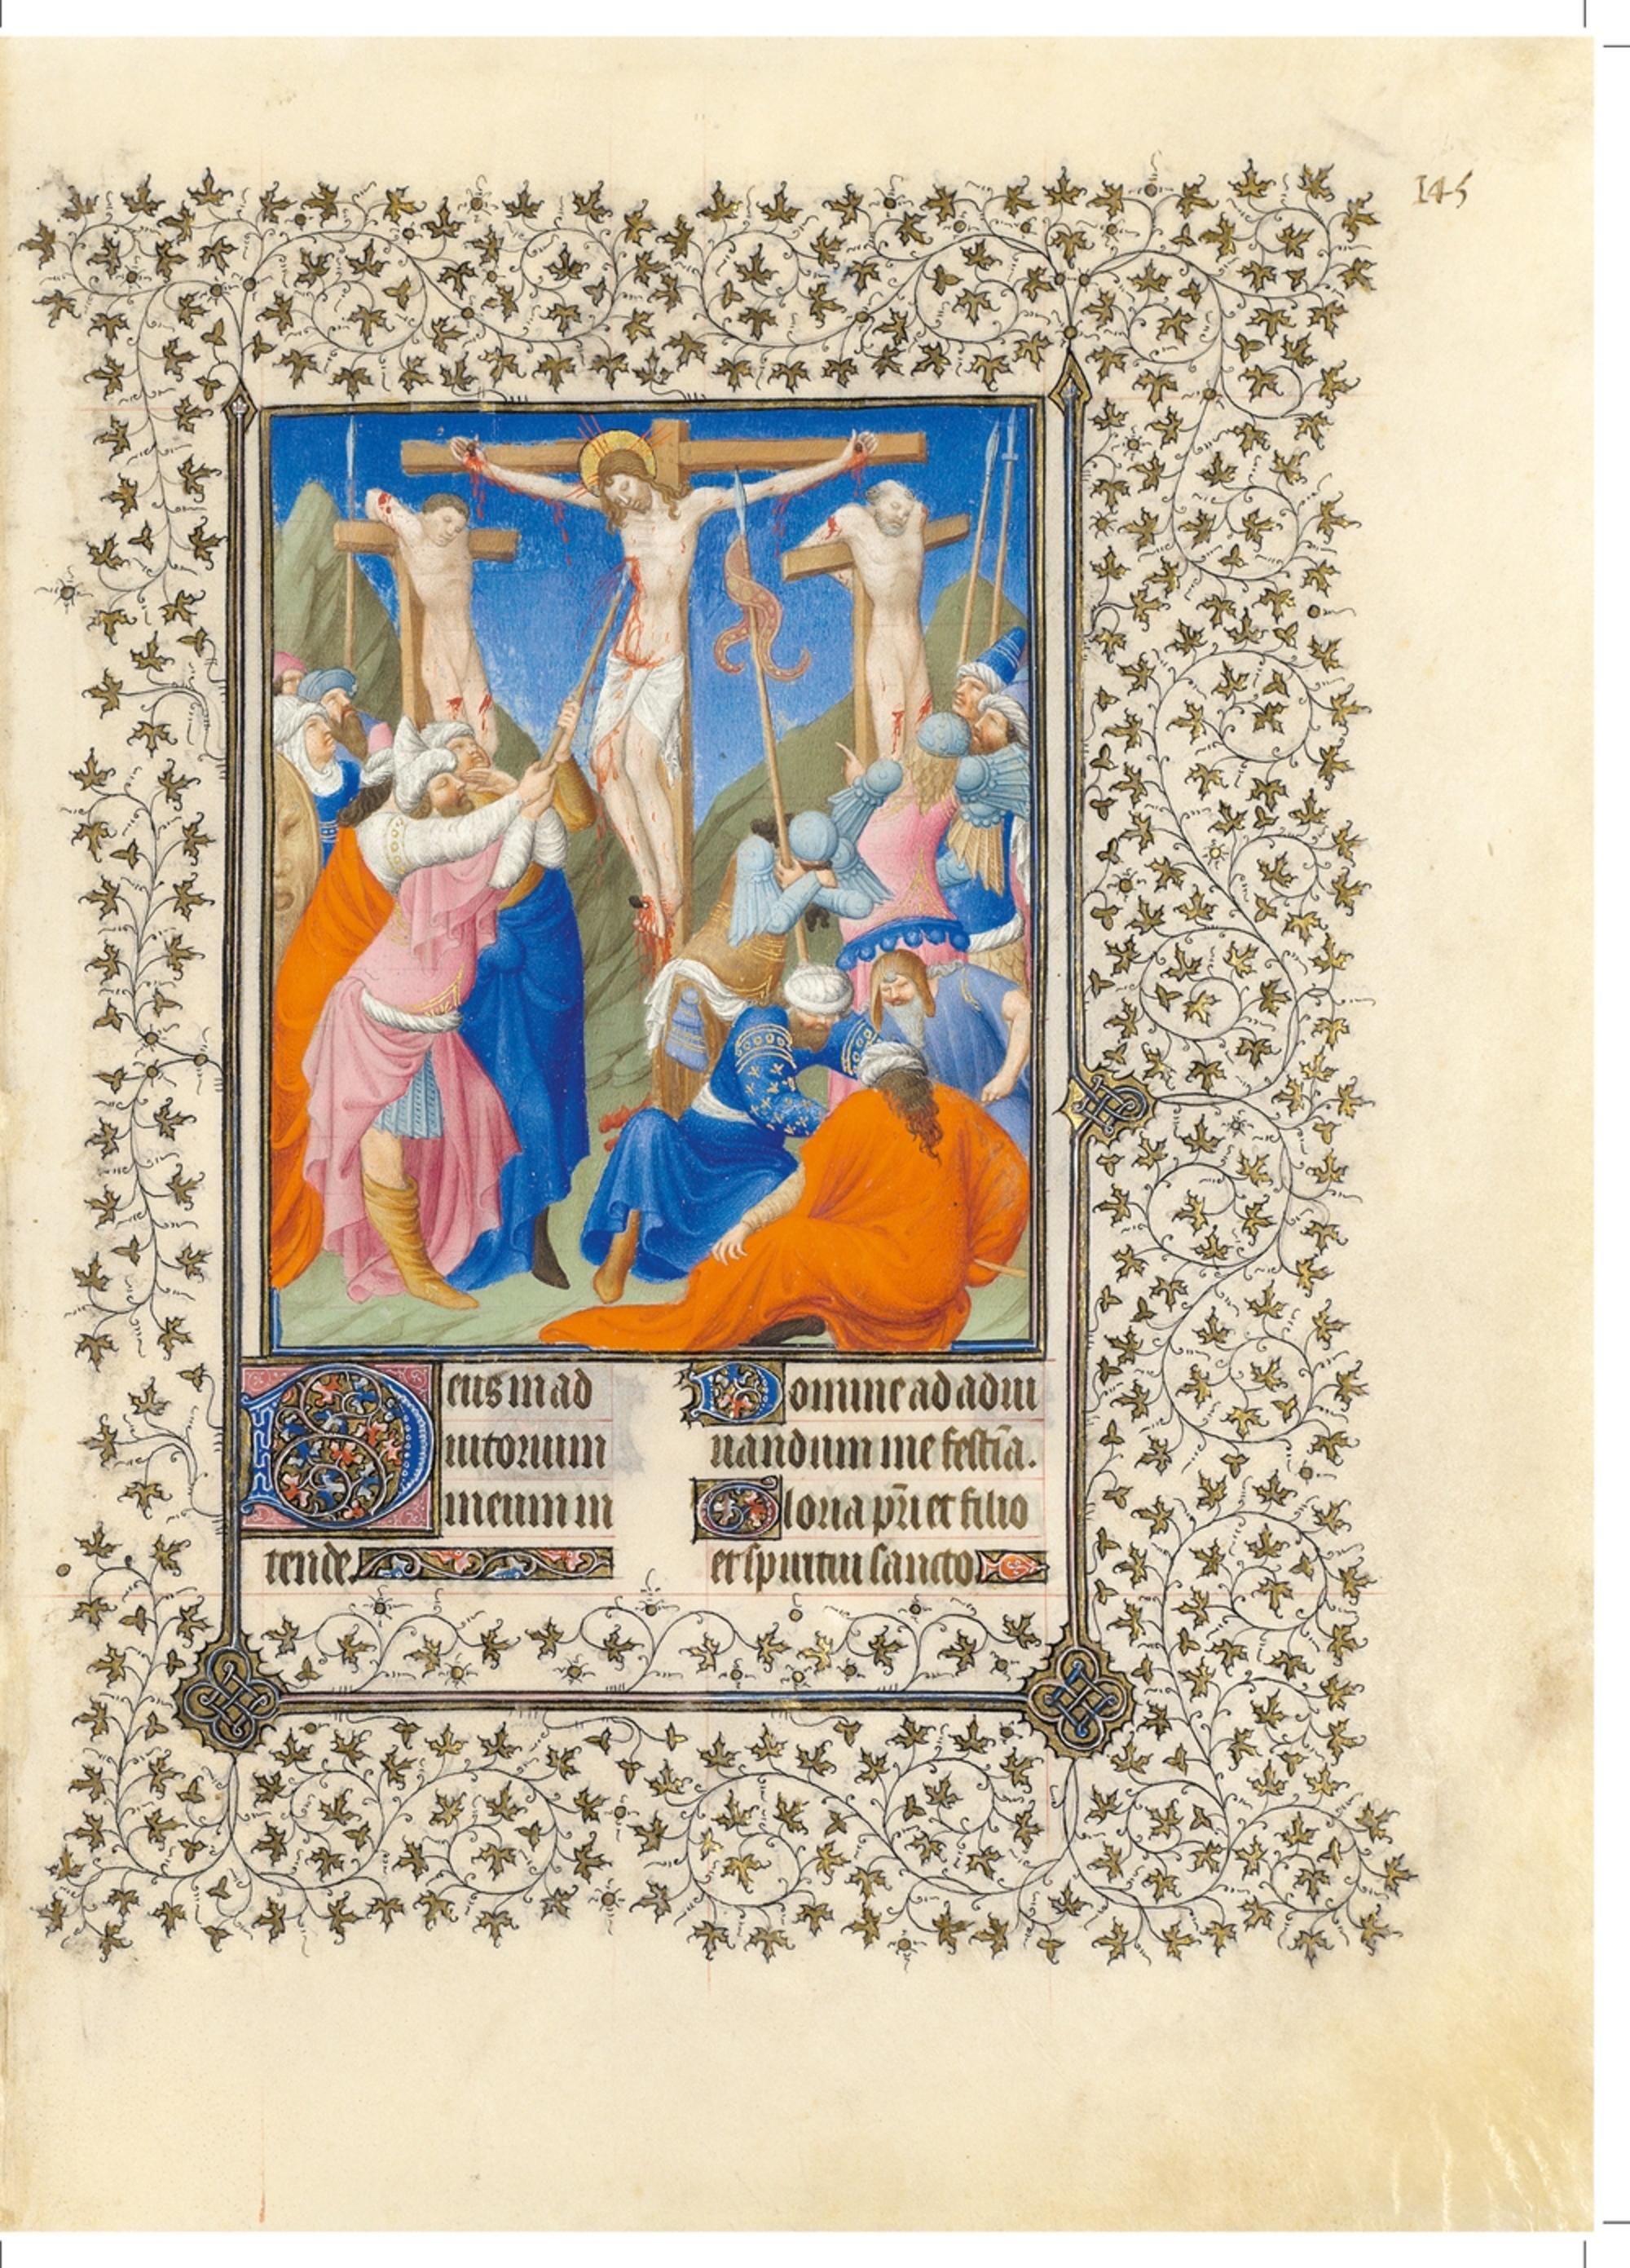 145
Deus in ad
iutorium
meum in
tende.
Domine ad adiu
uandum me festīa.
Gloria pr̄i et filio
et spiritui sancto